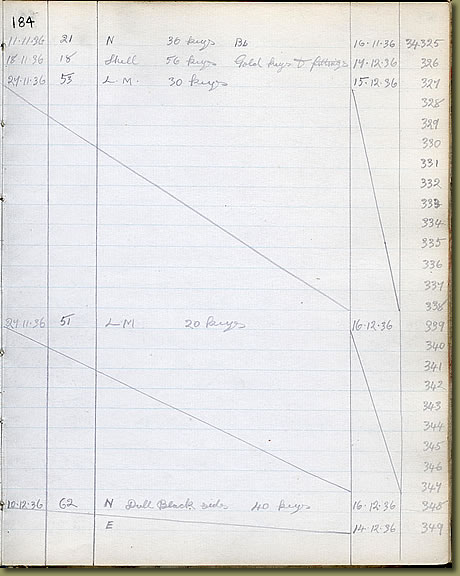 184
11-11-36 21 N 30 keys Bl 16-11-36 34325
18-11-36 18 Shell 56 keys Gold keys & fittings 19-12-36 326
24-11-36 53 L.M. 30 keys 15-12-36 327
328
329
330
331
332
333
334
335
336
337
338
24-11-36 51 L.M 20 keys 16-12-36 339
340
341
342
343
344
345
346
347
10-12-36 62 N Dull Black sides 40 keys 16-12-36 348
E 14-12-36 349